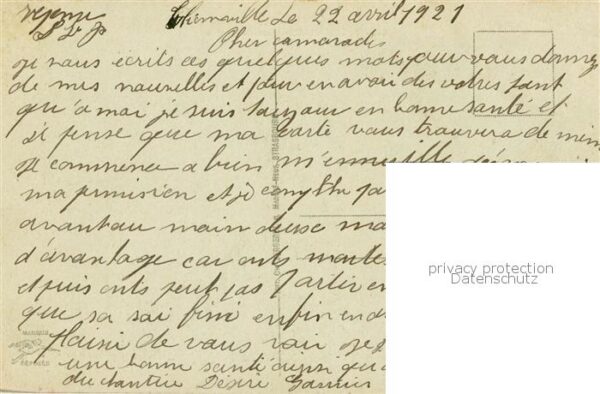 reponse
S V P
Thionville Le 22 avril 1921
Cher camarades
je vous écrits ces quelques mots pour vous donnez
de mes nouvelles et pour en avoir des votres tant
qu'a moi je suis toujour en bonne santé et
je pense que ma carte vous trouvera de mem
je commence a bien m'ennuille
ma permision et je compte
avantau main deuse ma
d'avantage car onts monte
et puis onts peut pas partir en
que sa soi fini enfin en
plaisir de vous voir je
une bonne santé ainsi qu
du chantier Désiré Garnier
privacy protection
Datenschutz